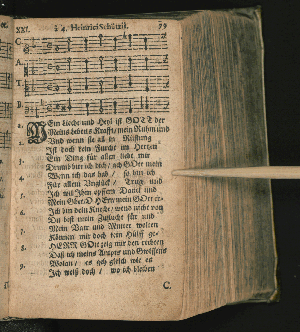 XXI. à 4. Heinrici Schützii. 79
C
A
T.
B
1. Ein Liecht und Heyl ist GOTT der
Meins Lebens Krafft / mein Ruhm und
2. Und wenn sie all in Rüstung
Ist doch kein Furcht im Hertzen
3. Ein Ding für allen liebt mir
Drumb bitt ich dich / ach GOtt mein
4. Wenn ich das hab / so bin ich
Für allem Unglück / Trutz und
5. Ich will ihm opffern Danck und
Mein Gbet / O HErr mein GOtt er-
6. Ich bin dein Knecht / wend nicht von
Du bist mein Zuflucht für und
7. Mein Vater und Mutter wolten
Können mir doch kein Hülff ge-
8. HERR GOtt zeig mir den rechten
Daß ich meins Ampts und
9. Wolan / es geh gleich wie es
Ich weiß doch / wo ich bleiben
C.